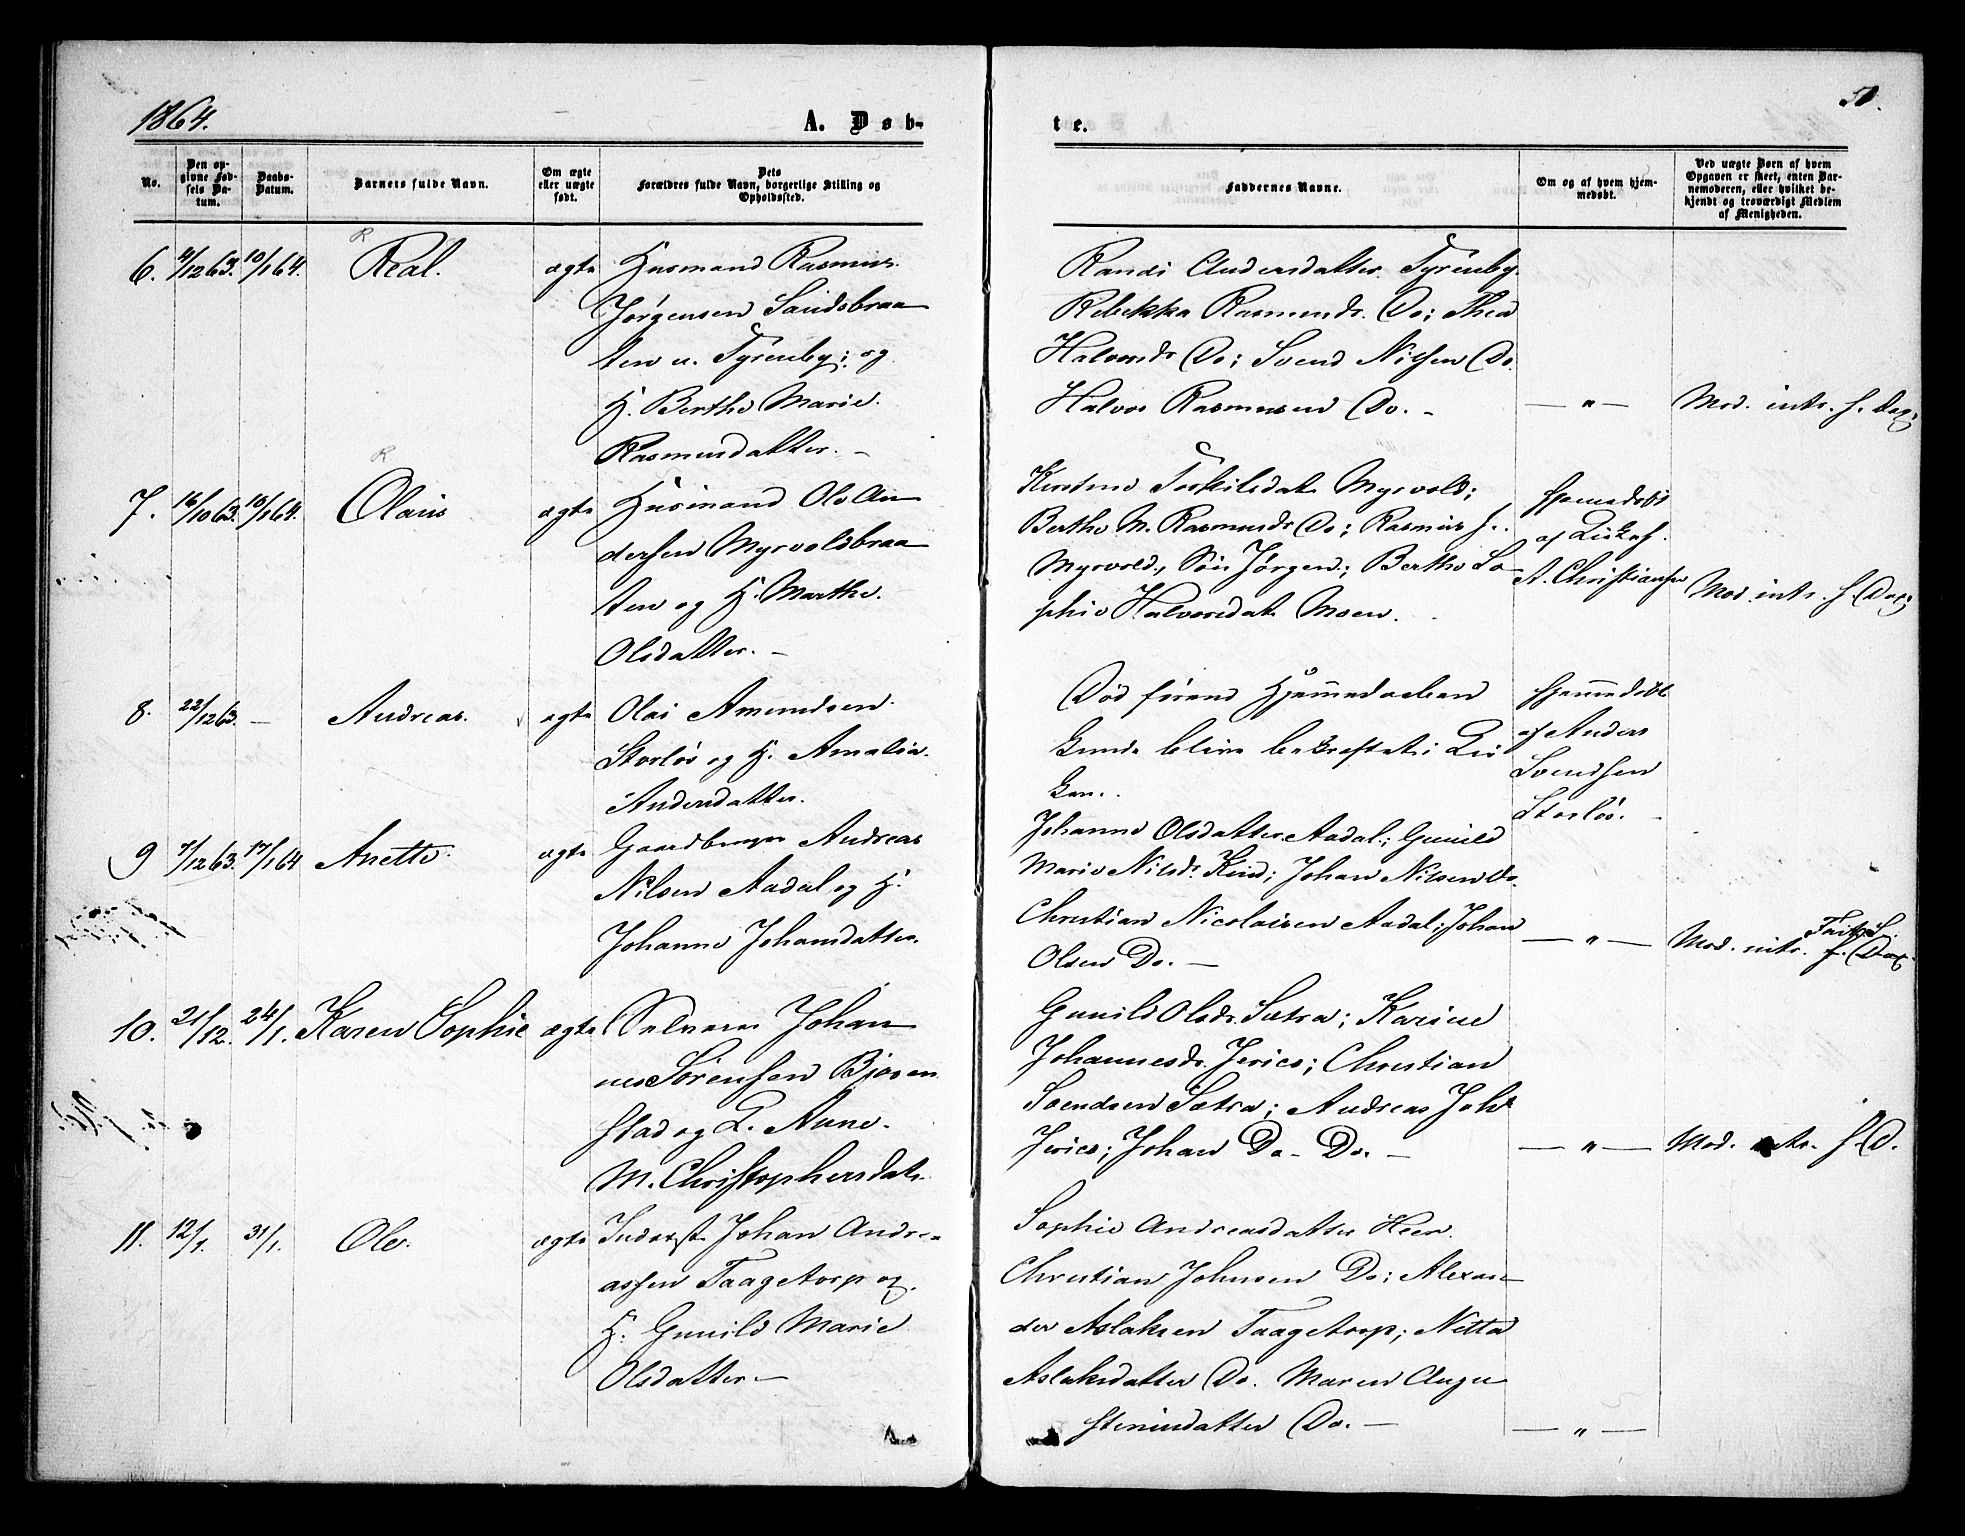 1864.
A. Døb-
te.
No.
Den opgivne Fødsels Datum.
Daabs-Datum.
Barnets fulde Navn.
Om ægte eller uægte født.
Dets Forældres fulde Navn, borgerlige Stilling og Opholdssted.
Faddernes Navne.
Om og af hvem hjemmedøbt.
Ved uægte Børn af hvem Opgaven er skeet, enten Barnemoderen, eller hvilket bekjendt og troværdigt Medlem af Menigheden.
6. 4/12 63. 10/1 64. Real. ægte Husmand Rasmus
Jørgensen Sandsbraa
ten u. Tyrenby; og
H. Berthe Marie
Rasmusdatter. –
Randi Andersdatter Tyrenby.
Rebekka Rasmusds. Do; Thea
Halvorsdr Do; Svend Nilsen Do.
Halvor Rasmussen Do. –
— " —
Mod. intr. f. Dag.
7. 16/10 63. 10/1 64. Olaus ægte Husmand Ole An
dersen Myrvoldbraa
ten og H. Marthe
Olsdatter. –
Kirstine Torkilsdat. Myrvold;
Berthe M. Rasmusdr Do; Rasmus
Myrvold, Søn Jørgen; Berthe So
phie Halvorsdat. Moen.
Hjemedøbt
af
A. Christiansen
Mod. intr. f. Dag.
8. 22/12 63. – Andreas. ægte Olai Amundsen
Storløs og H. Amalia
Andersdatter.
Død førend Hjemmedaaben
kunde blive bekræftet i Kir
ken.
Hjemmedøbt
af Anders
Svendsen
Storløs.
9 7/12 63. 17/1 64 Anette. ægte Gaardbruger Andreas
Nilsen Aadal og H.
Johanne Johansdatter.
Johanne Olsdatter Aadal; Gunild
Marie Nilsdr. Kind; Johan Nilsen Do.
Christian Nicolaisen Aadal; Johan
Olsen Do. –
— " —
Mod. intr. f. Dag.
10. 21/12. 24/1. Karen Sophie ægte Selveier Johan
nes Sørensen Bjøren
stad og H. Anne
M. Christophersdat.
Gunild Olsdr. Sætra; Karine
Johannesdr. Jerics; Christian
Svendsen Sætra; Andreas Joh.
Jerics; Johan Do. Do. –
— " —
Mod. intr. f. D.
11. 12/1. 31/1. Ole. ægte Inderst Johan Andre-
assen Taagetorp og
H. Gunild Marie
Olsdatter –
Sophie Andreasdatter Heer.
Christian Johnsen Do; Alexan-
der Aslaksen Taagetorp; Netta
Aslaksdatter Do. Maren Augu
stinusdatter Do. –
— " —